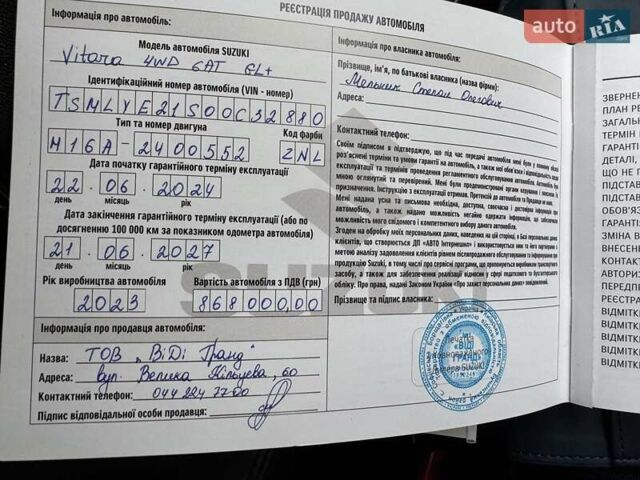 РЕЄСТРАЦІЯ ПРОДАЖУ АВТОМОБІЛЯ
Інформація про автомобіль:
Модель автомобіля SUZUKI
Vitara 4WD 6AT GL+
Ідентифікаційний номер автомобіля (VIN - номер)
TSMLYE21S00C32880
Тип та номер двигуна
Код фарби
M16A-2400552
ZNL
Дата початку гарантійного терміну експлуатації
22.06.2024
день місяць рік
Дата закінчення гарантійного терміну експлуатації (або по
досягненню 100 000 км за показником одометра автомобіля)
21.06.2027
день місяць рік
Рік виробництва автомобіля
Вартість автомобіля з ПДВ (грн)
2023
868000,00
Інформація про продавця автомобіля:
Назва: ТОВ "ВіДі Гранд"
Адреса: вул. Велика Кільцева, 60
Контактний телефон: 044 224 77 00
Підпис відповідальної особи продавця:
Інформація про власника автомобіля:
Прізвище, ім'я, по батькові власника (назва фірми):
Мельник Степан Олегович
Адреса:
Контактний телефон:
Своїм підписом я підтверджую, що під час передачі автомобіля мені були у повному обсязі
роз'яснені терміни та умови гарантії на автомобіль, а також мої обов'язки і відповідальність
експлуатації та терміни проведення регламентного обслуговування автомобіля. Автомобіль був
мною оглянутий та перевірений. Мені були продемонстровані органи керування і
призначення. Інструкцію з експлуатації отримав. Претензій до автомобіля та Продавця не маю.
Мені надана усна та письмова необхідна, доступна, своєчасна і достовірна інформація про
автомобіль, а також наявність негайно одержати інформацію, що забезпечує
можливість мого свідомого і компетентного вибору даного автомобіля.
Згоден на обробку моїх персональних даних, наведених на цій сторінці, в Базі персональних даних
клієнтів, що створюється ДП «АВТО Інтернешнл» і використання нею та його партнерами з
метою аналізу задоволення клієнтів рівнем післяпродажного обслуговування та інформування про
продукцію Suzuki, в тому числі про сервісні програми, що пропонуються виробником транспортного
засобу, а також для забезпечення реалізації відносин у сфері податкового та бухгалтерського
обліку. Про права, надані Законом України «Про захист персональних даних» повідомлений.
Прізвище та підпис власника:
Печатка
уповноваженого
дилера SUZUKI
"ВІДІ
ГРАНД"
SUZUKI
auto RIA
ЗВЕРНЕН
ПЛАН РЕ
ЗАГАЛЬН
ТЕРМІН
ГАРАНТІ
ДЕТАЛІ,
ЩО НЕ П
ПІДСТАВ
ПІДСТАВ
ОБОВ'ЯЗ
ГАРАНТІ
ЗМІНА В
ВНЕСЕН
КОНТАКТ
АВТОРИЗ
ПЕРЕДПР
РЕЄСТРА
ВІДМІТКИ
ВІДМІТКИ
ВІДМІТКИ
ВІДМІТКИ